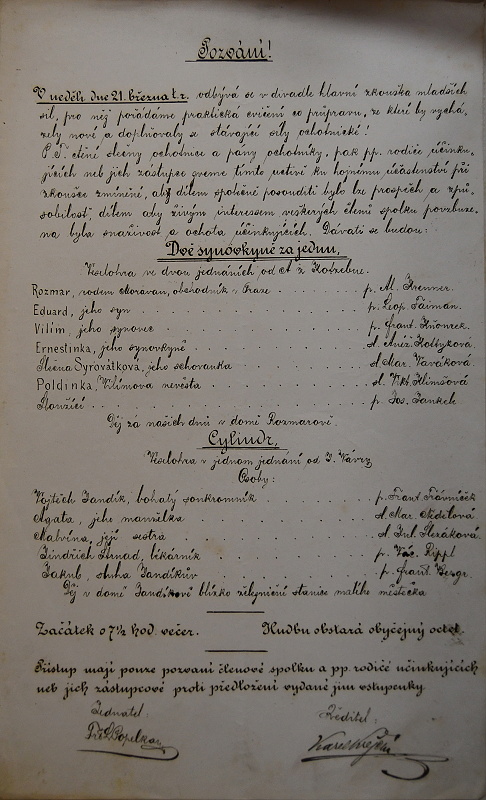 Pozvání!
V neděli dne 21. března t.r. odbývá se v divadle hlavní zkouška mladších
sil, pro něž pořádáme praktická cvičení co průpravu, ze které by vychá-
zely nové a doplňovaly se stávající síly ochotnické!
P.T. ctěné slečny ochotnice a pány ochotníky, pak pp. rodiče účinku-
jících neb jich zástupce zveme tímto uctivě ku hojnému účastenství při
zkoušce zmíněné, aby dílem společně posouditi bylo lze prospěch a způ-
sobilost, dílem aby živým interessem veškerých členů spolku povzbuze-
na byla snaživost a ochota účinkujících. Dávati se budou:
Dvě synovkyně za jednu,
Veselohra ve dvou jednáních od A. z Kotzebue.
Rozmar, rodem Moravan, obchodník v Praze p. Al. Brenner.
Eduard, jeho syn . . . . p. Leop. Taiman.
Vilím, jeho synovec . . . . p. Frant.
Ernestinka, jeho synovkyně . . . . sl. Anež.
Alžena Syrovátkova, jeho schovanka . . . . sl. Mar. Vaváková.
Poldinka, Vilímova nevěsta . . . . sl. Vikt. Klimšová
Sloužící . . . . p. Jos. Jankech
Děj za našich dnů v domě Rozmarově.
Cylindr,
Veselohra v jednom jednání od J. Vávry
Osoby:
Vojtěch Jandík, bohatý soukromník . . . . p. Frant. Trávníček
Agata, jeho manželka . . . . sl. Mar. Nedělová
Malvína, její sestra . . . . sl. Jul. Slezáková.
Jindřich Strnad, lékárník . . . . p. Vác. Rippl
Jakub, sluha Jandíkův . . . . p. Frant. Bezgr.
Děj v domě Jandíkově blízko železniční stanice malého městečka
Začátek o 7½ hod. večer. Hudbu obstará obyčejný octet.
Přístup mají pouze pozvaní členové spolku a pp. rodiče účinkujících
neb jich zástupcové proti předložení vydané jim vstupenky.
Jednatel: Ředitel:
Popelka